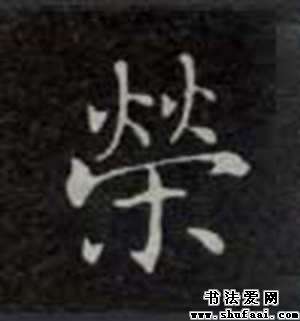 榮
书法爱网
www.shufaai.com